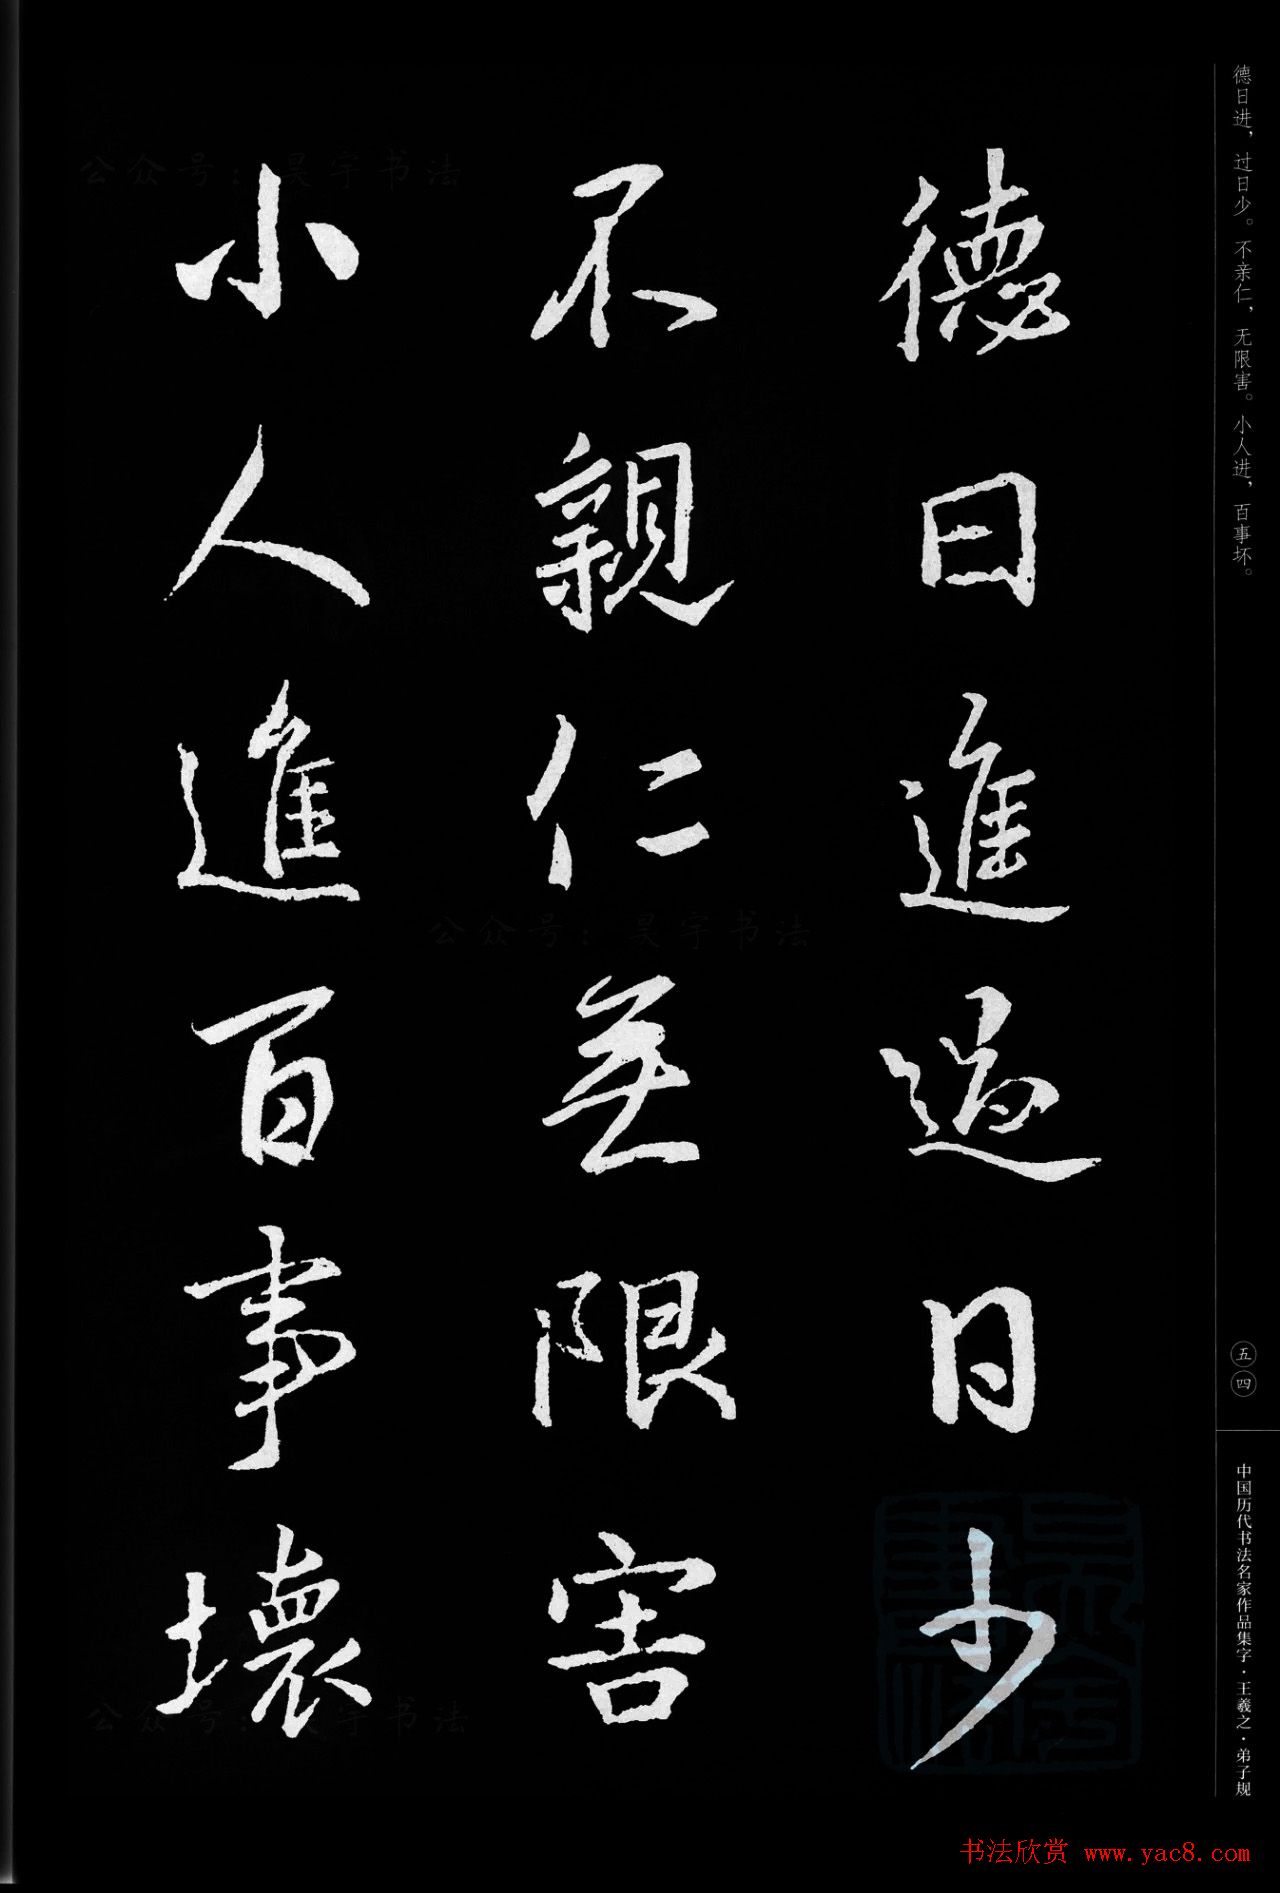 德日进，过日少。不亲仁，无限害。小人进，百事坏。
德日進過日少
不親仁無限害
小人進百事壞
五四
中国历代书法名家作品集字·王羲之·弟子规
公众号：昊宇书法
公众号：昊宇书法
公众号：昊宇书法
书法欣赏 www.yac8.com